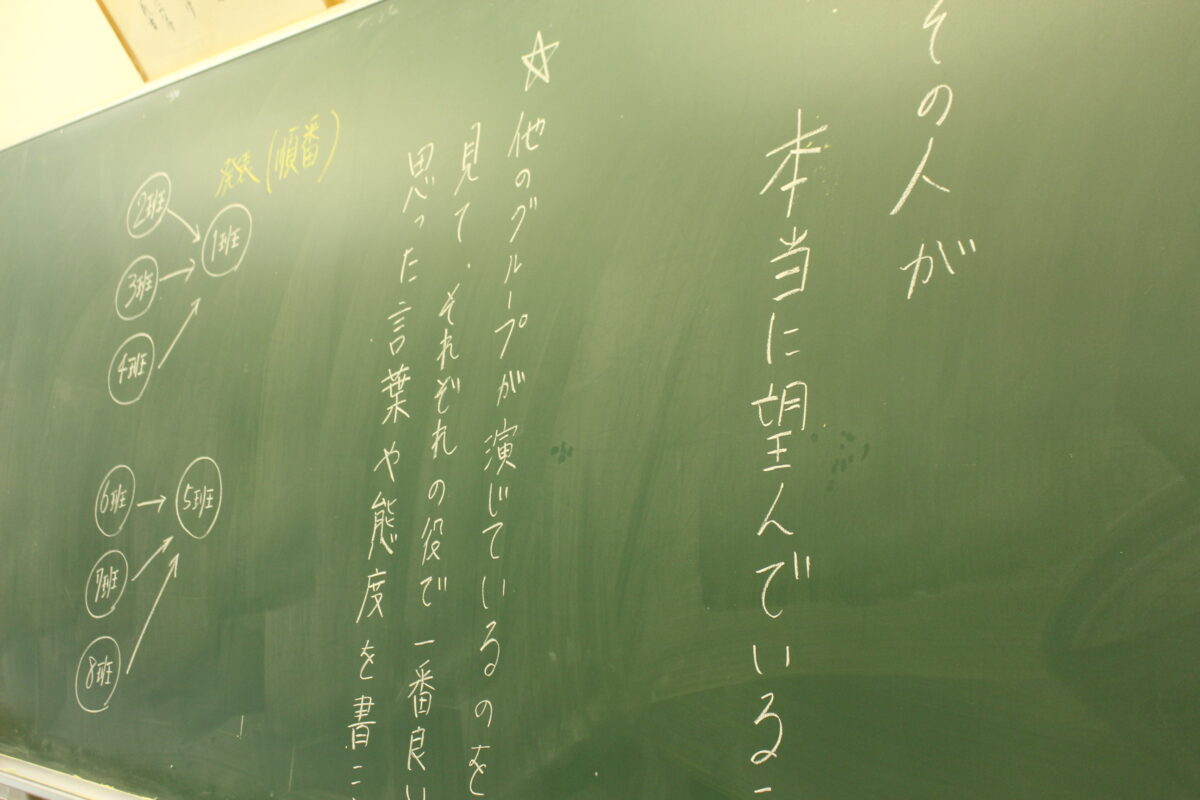 その人が
本当に望んでいる
☆他のグループが演じているのを
見て、それぞれの役で一番良い
思った言葉や態度を書こ
発表(順番)
1班
2班
3班
4班
5班
6班
7班
8班